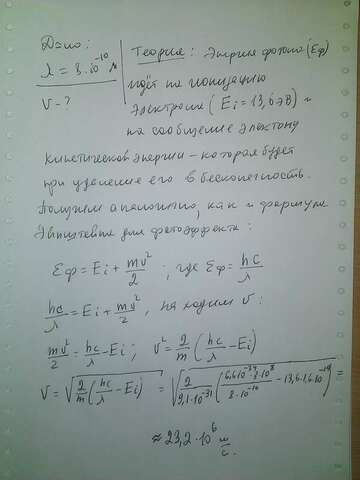 Дано:
λ = 3·10⁻¹⁰ м
V - ?
Теория: Энергия фотона (Eф)
идёт на ионизацию
электрона (Ei = 13,6 эВ) и
на сообщение электону
кинетической энергии - которая будет
при удалению его в бесконечность.
Получим аналогично, как и формула
Эйнштейна для фотоэффекта:
Eф = Ei + mv²/2 ; где Eф = hc/λ
hc/λ = Ei + mv²/2 , находим V:
mv²/2 = hc/λ - Ei ; V² = 2/m (hc/λ - Ei)
V = √(2/m (hc/λ - Ei)) = √(2/9,1·10⁻³¹ (6,6·10⁻³⁴·3·10⁸/3·10⁻¹⁰ - 13,6·1,6·10⁻¹⁹)) =
≈ 23,2·10⁶ м/с.